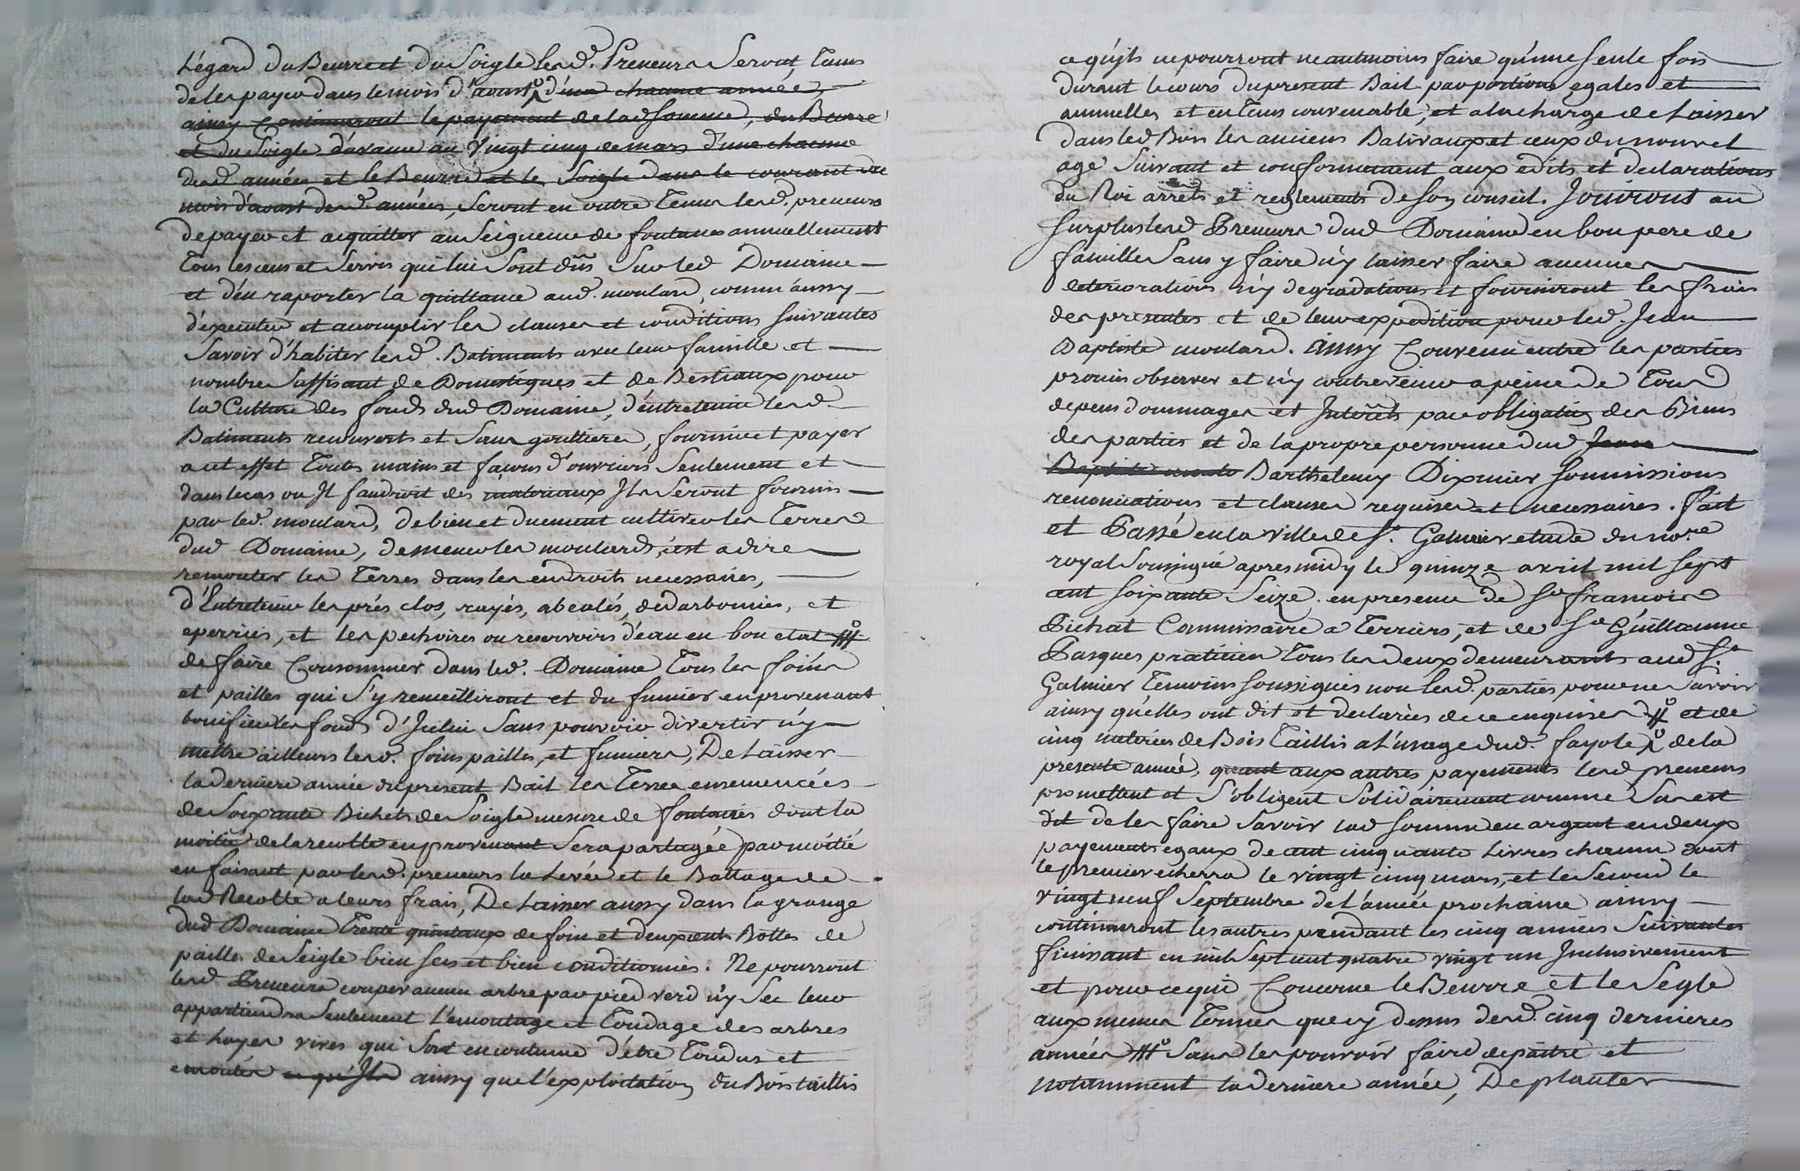 L'égard du Beurre et du Soigle lesd. Preneurs Seront Tenus
de les payer dans le mois d'aoust d'une chacune année,
ainsy Continueront le payement de lad somme, du Beurre
et du Soigle d'avance au Vingt cinq de mars d'une chacune
desd années et le Beurre et le Soigle dans le courant du
mois d'aoust desd années, Seront en outre Tenus lesd. preneurs
de payer et acquitter au Seigneur de fontanes annuellement
Tous les cens et Servis qui lui Sont dûs Sur led Domaine
et d'en raporter la quittance aud. moulard, comm'aussy
d'executer et accomplir les clauses et conditions Suivantes
Savoir d'habiter lesd. Batiments avec leur famille et
nombre Suffisant de Domestiques et de Bestiaux pour
la Culture des fonds dud Domaine, d'entretenir lesd.
Batiments recouverts et Sans gouttieres, fournir et payer
a cet effet Toutes mains et façons d'ouvriers Seulement et
dans le cas ou Il faudroit des materiaux Ils Seront fournis
par led. moulard, de bien et duement cultiver les Terres
dud Domaine, de mener les moulards, c'est a dire
remonter les Terres dans les endroits necessaires,
d'Entretenir les prés clos, rayés, abealés, dédarbonnés, et
eperriés, et les pechoires ou reservoirs d'eau en bon etat
de faire Consommer dans led. Domaine Tous les foins
et pailles qui S'y recueilliront et du fumier en provenant
bonifier les fonds d'Iceluy Sans pouvoir divertir n'y
mettre ailleurs lesd. foins pailles, et fumiers, De Laisser
la derniere année du present Bail les Terres ensemencées
de Soixante Bichets de Soigle mesure de fontanes dont la
moitié de la recolte en provenant Sera partagée par moitié
en faisant par lesd. preneurs la Levée et le Battage de
lad Recolte a leurs frais, De Laisser aussy dans la grange
dud Domaine Trente quintaux de foin et deux cents Bottes de
pailles de Seigle bien secs et bien conditionnés. Ne pourront
lesd Preneurs couper aucun arbre par pied verd n'y Sec leur
appartiendra Seulement l'emontage et Tondage des arbres
et hayes vives qui Sont en coutume d'être Tondus et
emontés ce qu'Ils ainsy que l'exploitation du Bois taillis
ce qu'ils ne pourront neantmoins faire qu'une seule fois
durant le cours du present Bail par portions egales et
annuelles et en Tems convenable, et a la charge de Laisser
dans led Bois les anciens Balivaux et ceux du nouvel
age Suivant et conformement aux edits et declarations
du Roi arrets et reglements de Son conseil. Jouiront au
Surplus lesd Preneurs dud Domaine en bon pere de
famille Sans y faire n'y laisser faire aucunes
deteriorations n'y degradations et fourniront les frais
des presentes et de leur expedition pour led. Jean
Baptiste moulard. Ainsy Convenu entre les parties
promis observer et n'y contrevenir a peine de Tous
depens dommages et Interêts par obligation des Biens
des parties et de la propre personne dud Jean
Baptiste Barthelemy Dixmier Soumissions
renonciations et clauses requises et necessaires. Fait
et Passé en la ville de St. Galmier etude du nore
royal Soussigné apres midy le quinze avril mil Sept
cent Soixante Seize. en presence de Sr francois
Pichat Commissaire a Terriers, et de Sr Guillaume
Pasques praticien Tous les deux demeurants aud St.
Galmier Temoins Soussignés non lesd. parties pour ne Savoir
ainsy qu'elles ont dit et declarées de ce enquises et de
cinq metérées de Bois Taillis a L'usage dud. fayole de la
presente année, quant aux autres payements lesd preneurs
promettent et S'obligent Solidairement comme Sus est
dit de les faire Savoir lad Somme en argent en deux
payements egaux de cent cinquante Livres chacun dont
le premier echerra le vingt cinq mars, et le Second le
vingt neuf Septembre de l'année prochaine ainsy
continueront les autres pendant les cinq années Suivantes
finissant en mil Sept cent quatre vingt un Inclusivement
et pour ce qui Concerne le Beurre et le Segle
aux memes Termes que cy dessus desd. cinq dernieres
années Sans les pouvoir faire depaitre et
notamment la derniere année, De planter